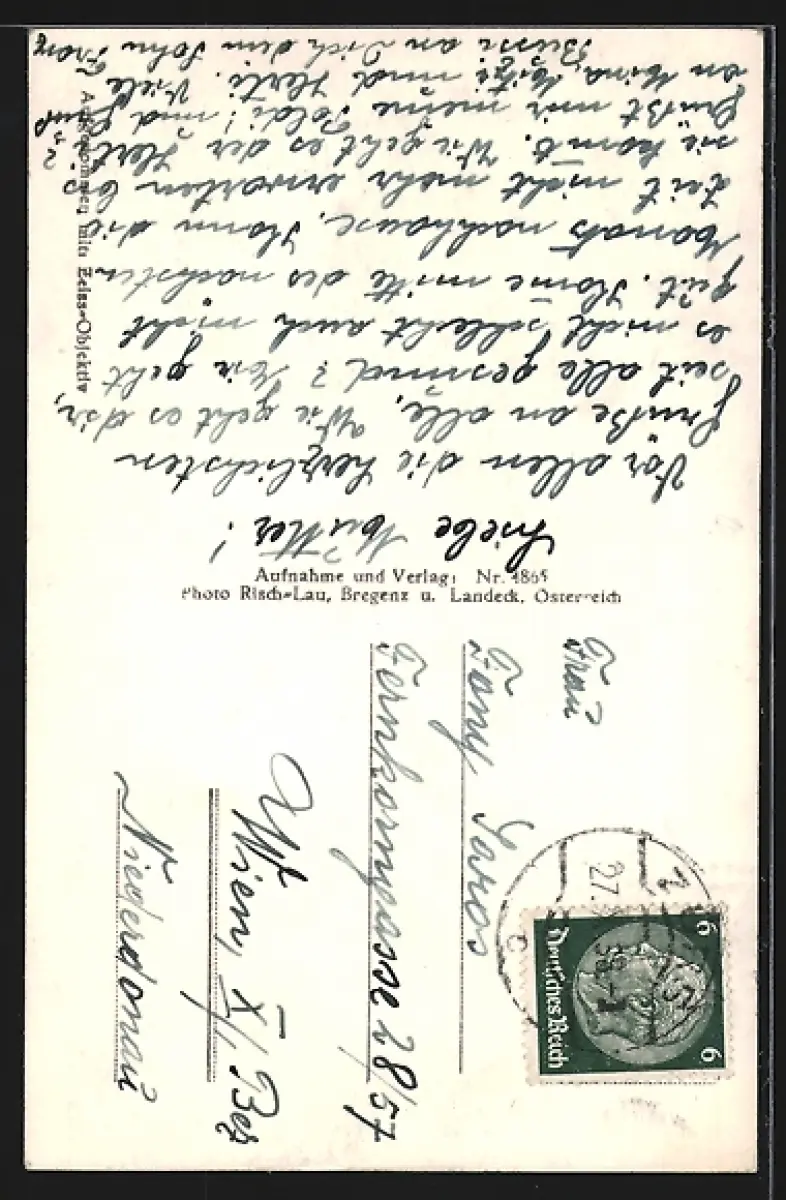 Liebe Mutter!
Vor allen die herzlichsten
Grüße an alle, Wie geht es dir,
seit alle gesund? Mir geht
es nicht schlecht auch nicht
gut. Kome mitte des nächsten
Monats nachhause, Kann die
Zeit nicht mehr erwarten bis
sie komt. Wie geht es der Herti?
Grüßt mir meine Poldi! und
an Mina, Mitzi und Herti. Viele
Bussi an Dich dein Sohn Franz
Aufnahme und Verlag: Nr. 4865
Photo Risch-Lau, Bregenz u. Landeck, Österreich
Aufgenommen mit: Zeiss-Objektiv
Frau
Fany
Fernkorngasse 28/57
Wien, X/ Bez
Niederdonau
Deutsches Reich
6
6
27.
38